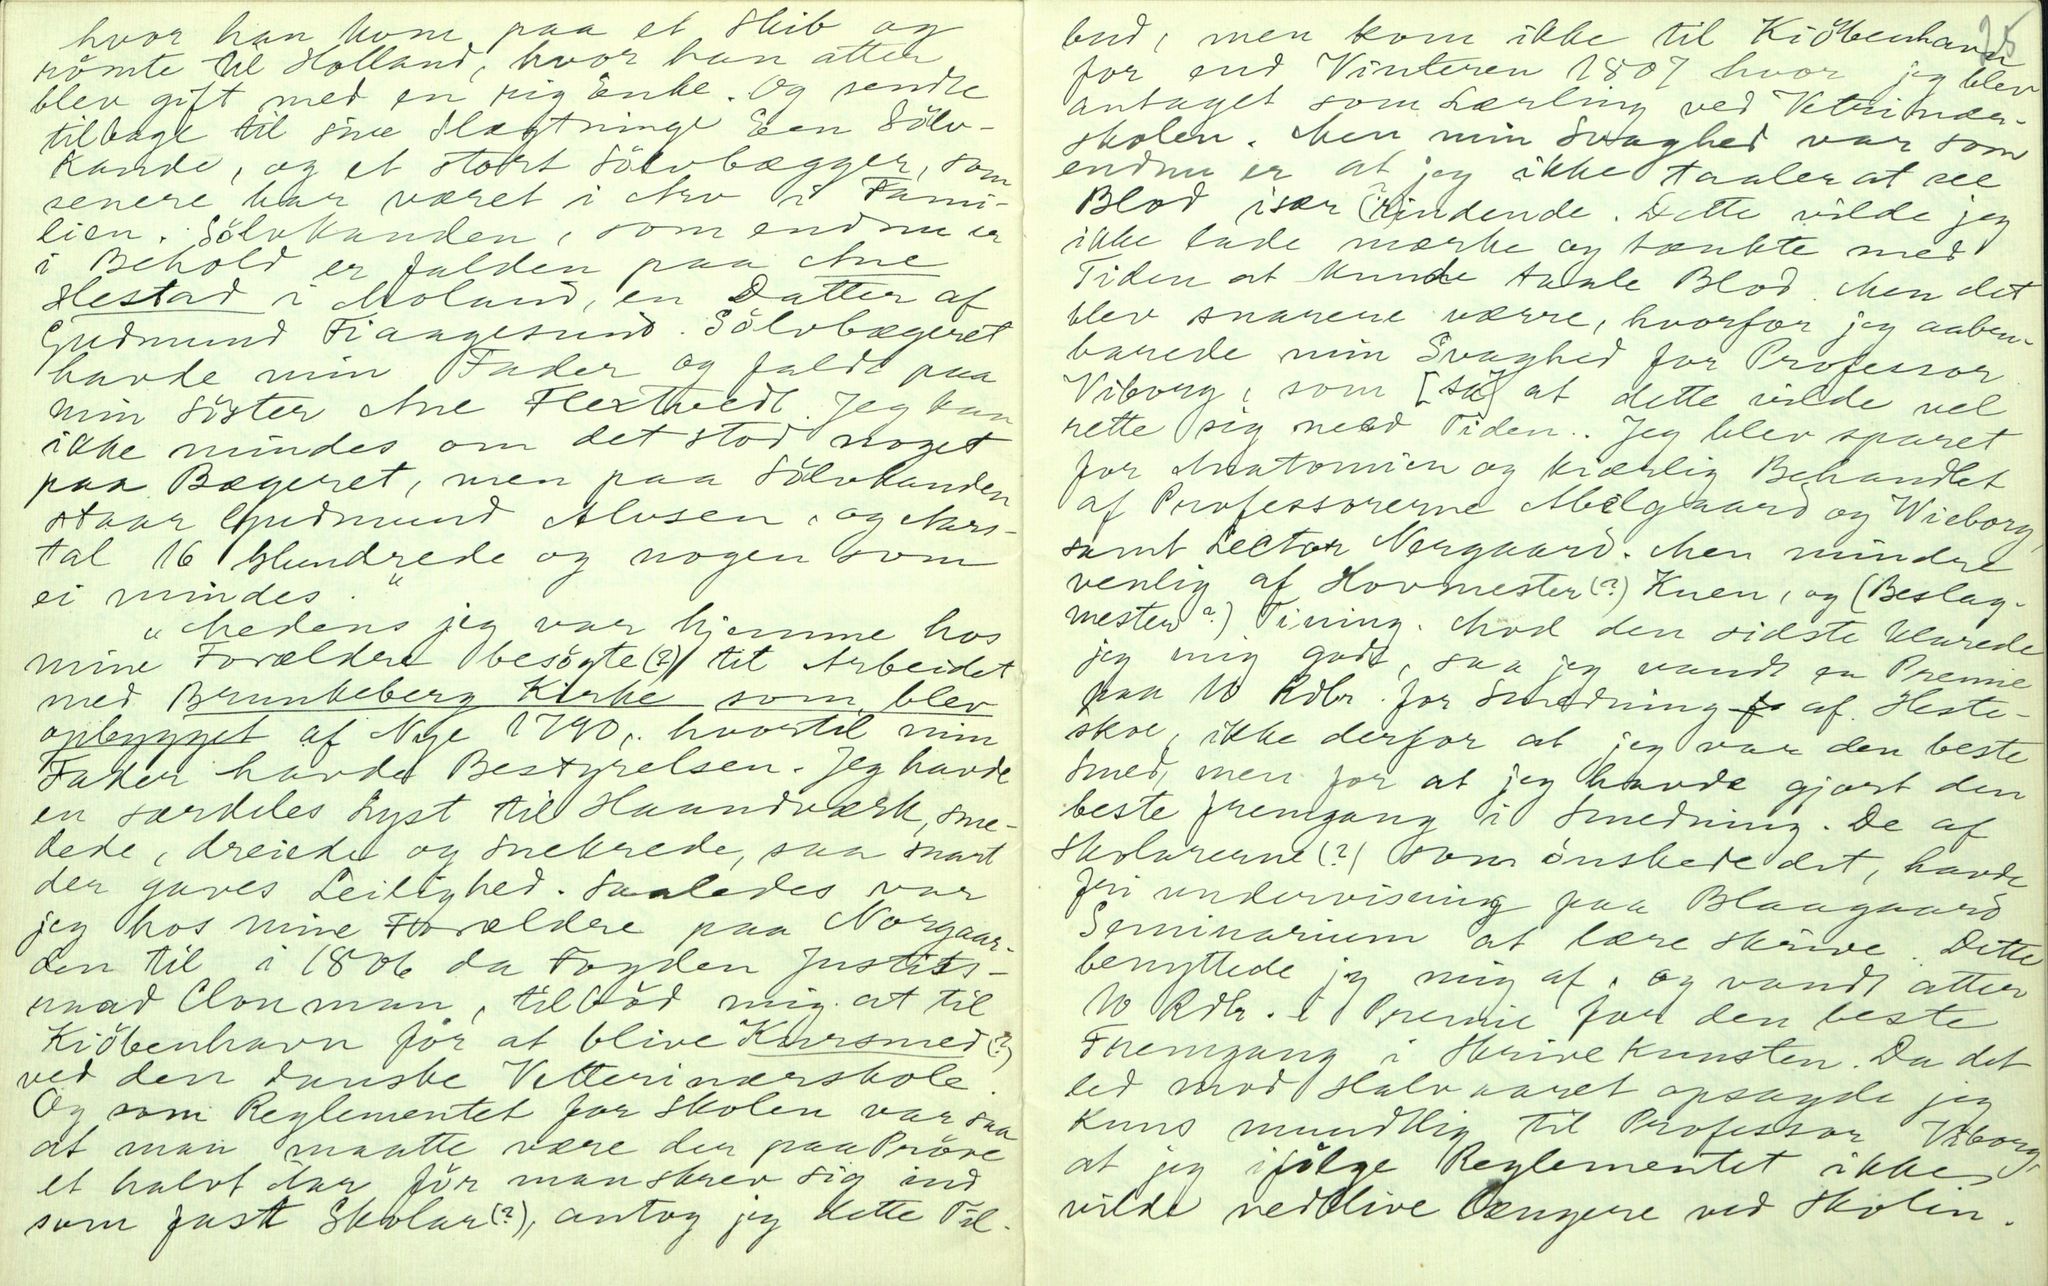 hvor han kom paa et Skib og
römte til Holland, hvor han atter
blev gift med en rig Enke. Og sendte
tilbage til sine Slægtninge Een Sölv-
kande, og et stort Sölvbægger, som
senere har været i Arv i Fami-
lien. Sölvkanden, som endnu er
i Behold er falden paa Ane
Hestad i Moland, en Datter af
Gudmund Fiaagesund. Sölvbægeret
havde min Fader og faldt paa
min Söster Ane Flextvedt. Jeg kan
ikke mindes om det stod noget
paa Bægeret, men paa Sölvkanden
staar Gudmund Alvsen, og Aars-
tal 16 hundrede og nogen som
ei mindes."
"Medens jeg var hjemme hos
mine Forældre besögte (?) til Arbeidet
med Brunkeberg Kirke som blev
opbygget af Nye 1790, hvortil min
Fader havde Bestyrelsen. Jeg havde
en særdeles Lyst til Haandværk, sme-
dede, dreiede og Snekrede, saa snart
der gaves Leilighed. Saaledes var
jeg hos mine Forældre paa Norgaar-
den til i 1806 da Fogden Justits-
raad Clouman, tilböd mig at til
Kiöbenhavn för at blive Kursmed (?)
ved den danske Vetterinærskole.
Og som Reglementet for Skolen var saa
at man maatte være der paa Pröve
et halvt Aar för man skrev sig ind
som fast Skolar (?), antog jeg dette Til-
25
bud, men kom ikke til Kiöbenhavn
for end Vinteren 1807 hvor jeg blev
antaget som Lærling ved Vetrinær-
skolen. Men min Svaghed var som
endnu er at jeg ikke taaler at see
Blod især (?rindende. Dette vilde jeg
ikke lade mærke og tænkte med
Tiden at kunde taale Blod. Men det
blev snarere værre, hvorfor jeg aaben-
barede min Svaghed for Professor
Viborg, som [sa] at dette vilde vel
rette sig med Tiden. Jeg blev sparet
for Anatomien og kiærlig Behandlet
af Professorerne Melgaard og Wieborg,
samt Lector Nørgaard. Men mindre
venlig af Hovmester (?) Knen, og (Beslag-
mester?) Tining. Mod den sidste klarede
jeg mig godt, saa jeg vandt en Premie
paa 10 Rdlr. for Smedning af Heste-
skoe, ikke derfor at jeg var den beste
Smed, men for at jeg havde gjort den
beste fremgang i Smedning. De af
Skolarerne (?) som önskede det, havde
fri undervisning paa Blaagaard
Seminarium at lære skrive. Dette
benyttede jeg mig af, og vandt atter
10 Rdlr. i Premie for den beste
Fremgang i Skrivekunsten. Da det
led mod Halvaaret opsagde jeg
kuns mundtlig til Professor Viborg,
at jeg ifölge Reglementet ikke
vilde vedblive længere ved Skolen.